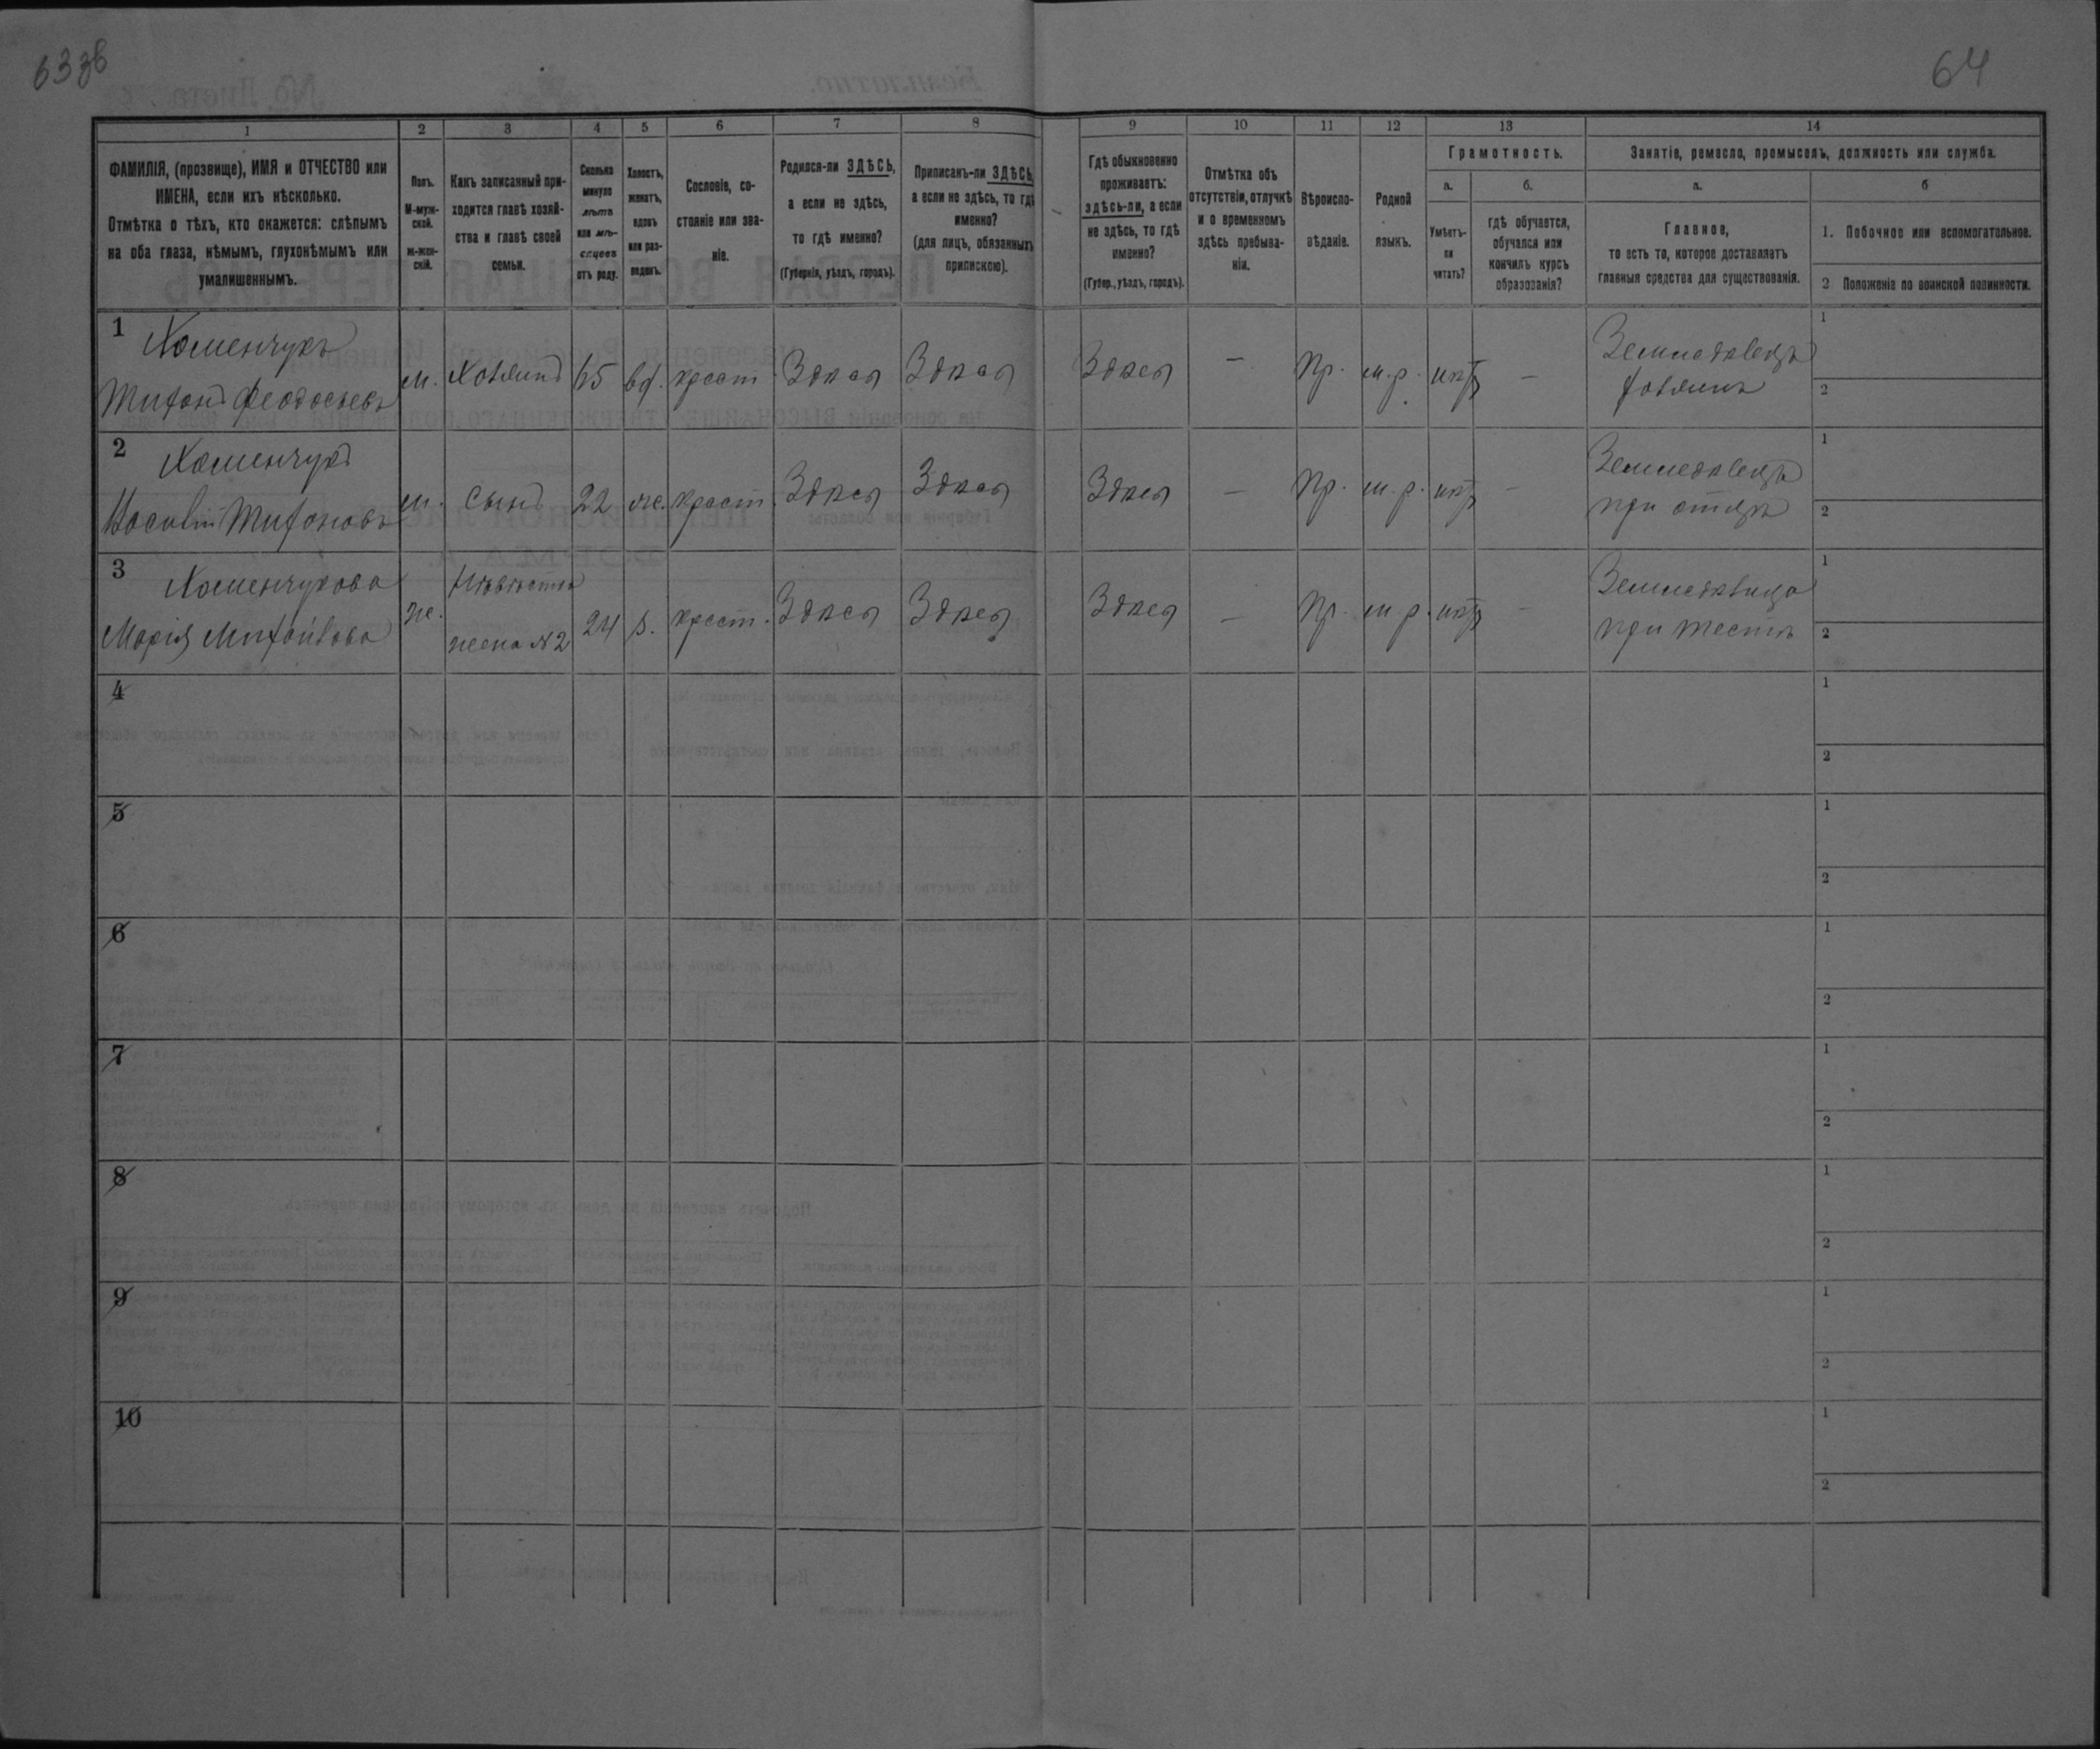 63 зв
64
1
2
3
4
5
6
7
8
9
10
11
12
13
14
ФАМИЛІЯ, (прозвище), ИМЯ и ОТЧЕСТВО или
ИМЕНА, если ихъ нѣсколько.
Отмѣтка о тѣхъ, кто окажется: слѣпымъ
на оба глаза, нѣмымъ, глухонѣмымъ или
умалишеннымъ.
Полъ.
М-муж-
ской.
ж-жен-
скій.
Какъ записанный при-
ходится главѣ хозяй-
ства и главѣ своей
семьи.
Сколько
минуло
лѣтъ
или мѣ-
сяцевъ
отъ роду.
Холостъ,
женатъ,
вдовъ
или раз-
веденъ.
Сословіе, со-
стояніе или зва-
ніе.
Родился-ли ЗДѢСЬ,
а если не здѣсь,
то гдѣ именно?
(Губернія, уѣздъ, городъ).
Приписанъ-ли ЗДѢСЬ,
а если не здѣсь, то гдѣ
именно?
(для лицъ, обязанныхъ
припискою).
Гдѣ обыкновенно
проживаетъ:
здѣсь-ли, а если
не здѣсь, то гдѣ
именно?
(Губер., уѣздъ, городъ).
Отмѣтка объ
отсутствіи, отлучкѣ
и о временномъ
здѣсь пребыва-
ніи.
Вѣроиспо-
вѣданіе.
Родной
языкъ.
Грамотность.
а.
Умѣетъ-
ли
читать?
б.
гдѣ обучается,
обучался или
кончилъ курсъ
образованія?
Занятіе, ремесло, промыселъ, должность или служба.
а.
Главное,
то есть то, которое доставляетъ
главныя средства для существованія.
б
1. Побочное или вспомогательное.
2 Положеніе по воинской повинности.
1
Хоменчукъ
Тихонъ Феодосіевъ
м.
Хозяинъ
65
вд.
крест.
Здѣсь
Здѣсь
Здѣсь
—
Пр.
м.р.
нѣтъ
—
Земледѣлецъ
хозяинъ
1
2
2
Хоменчукъ
Василій Тихоновъ
м.
Сынъ
22
ж.
крест.
Здѣсь
Здѣсь
Здѣсь
—
Пр.
м.р.
нѣтъ
—
Земледѣлецъ
при отцѣ
1
2
3
Хоменчукова
Марія Михайлова
ж.
Невѣстка
жена №2
24
з.
крест.
Здѣсь
Здѣсь
Здѣсь
—
Пр.
м.р.
нѣтъ
—
Земледѣлица
при тестѣ
1
2
4
1
2
5
1
2
6
1
2
7
1
2
8
1
2
9
1
2
10
1
2